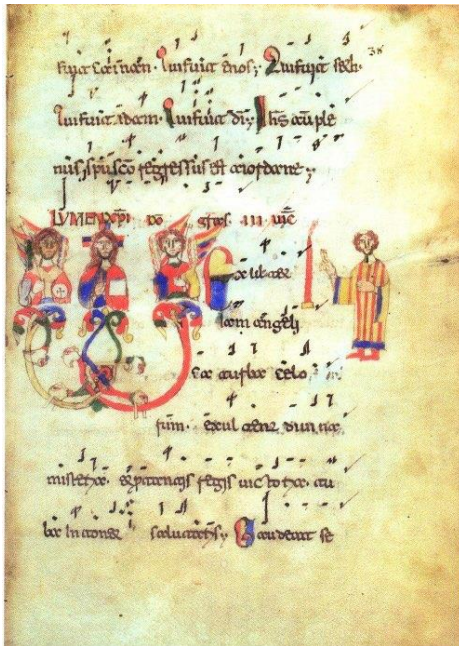 fuit cainan. Qui fuit enos; Qui fuit seth.
Qui fuit adam. Qui fuit di; Ihs au ple
nus spu sco regressus est a iordane;
LVMEN XPI do gras. III vic
Exultet
iam angeli
ca turba celo
rum. exultent diuina
misteria. et pro tanti regis uictoria. tu
ba intonet salutaris; Gaudeat se